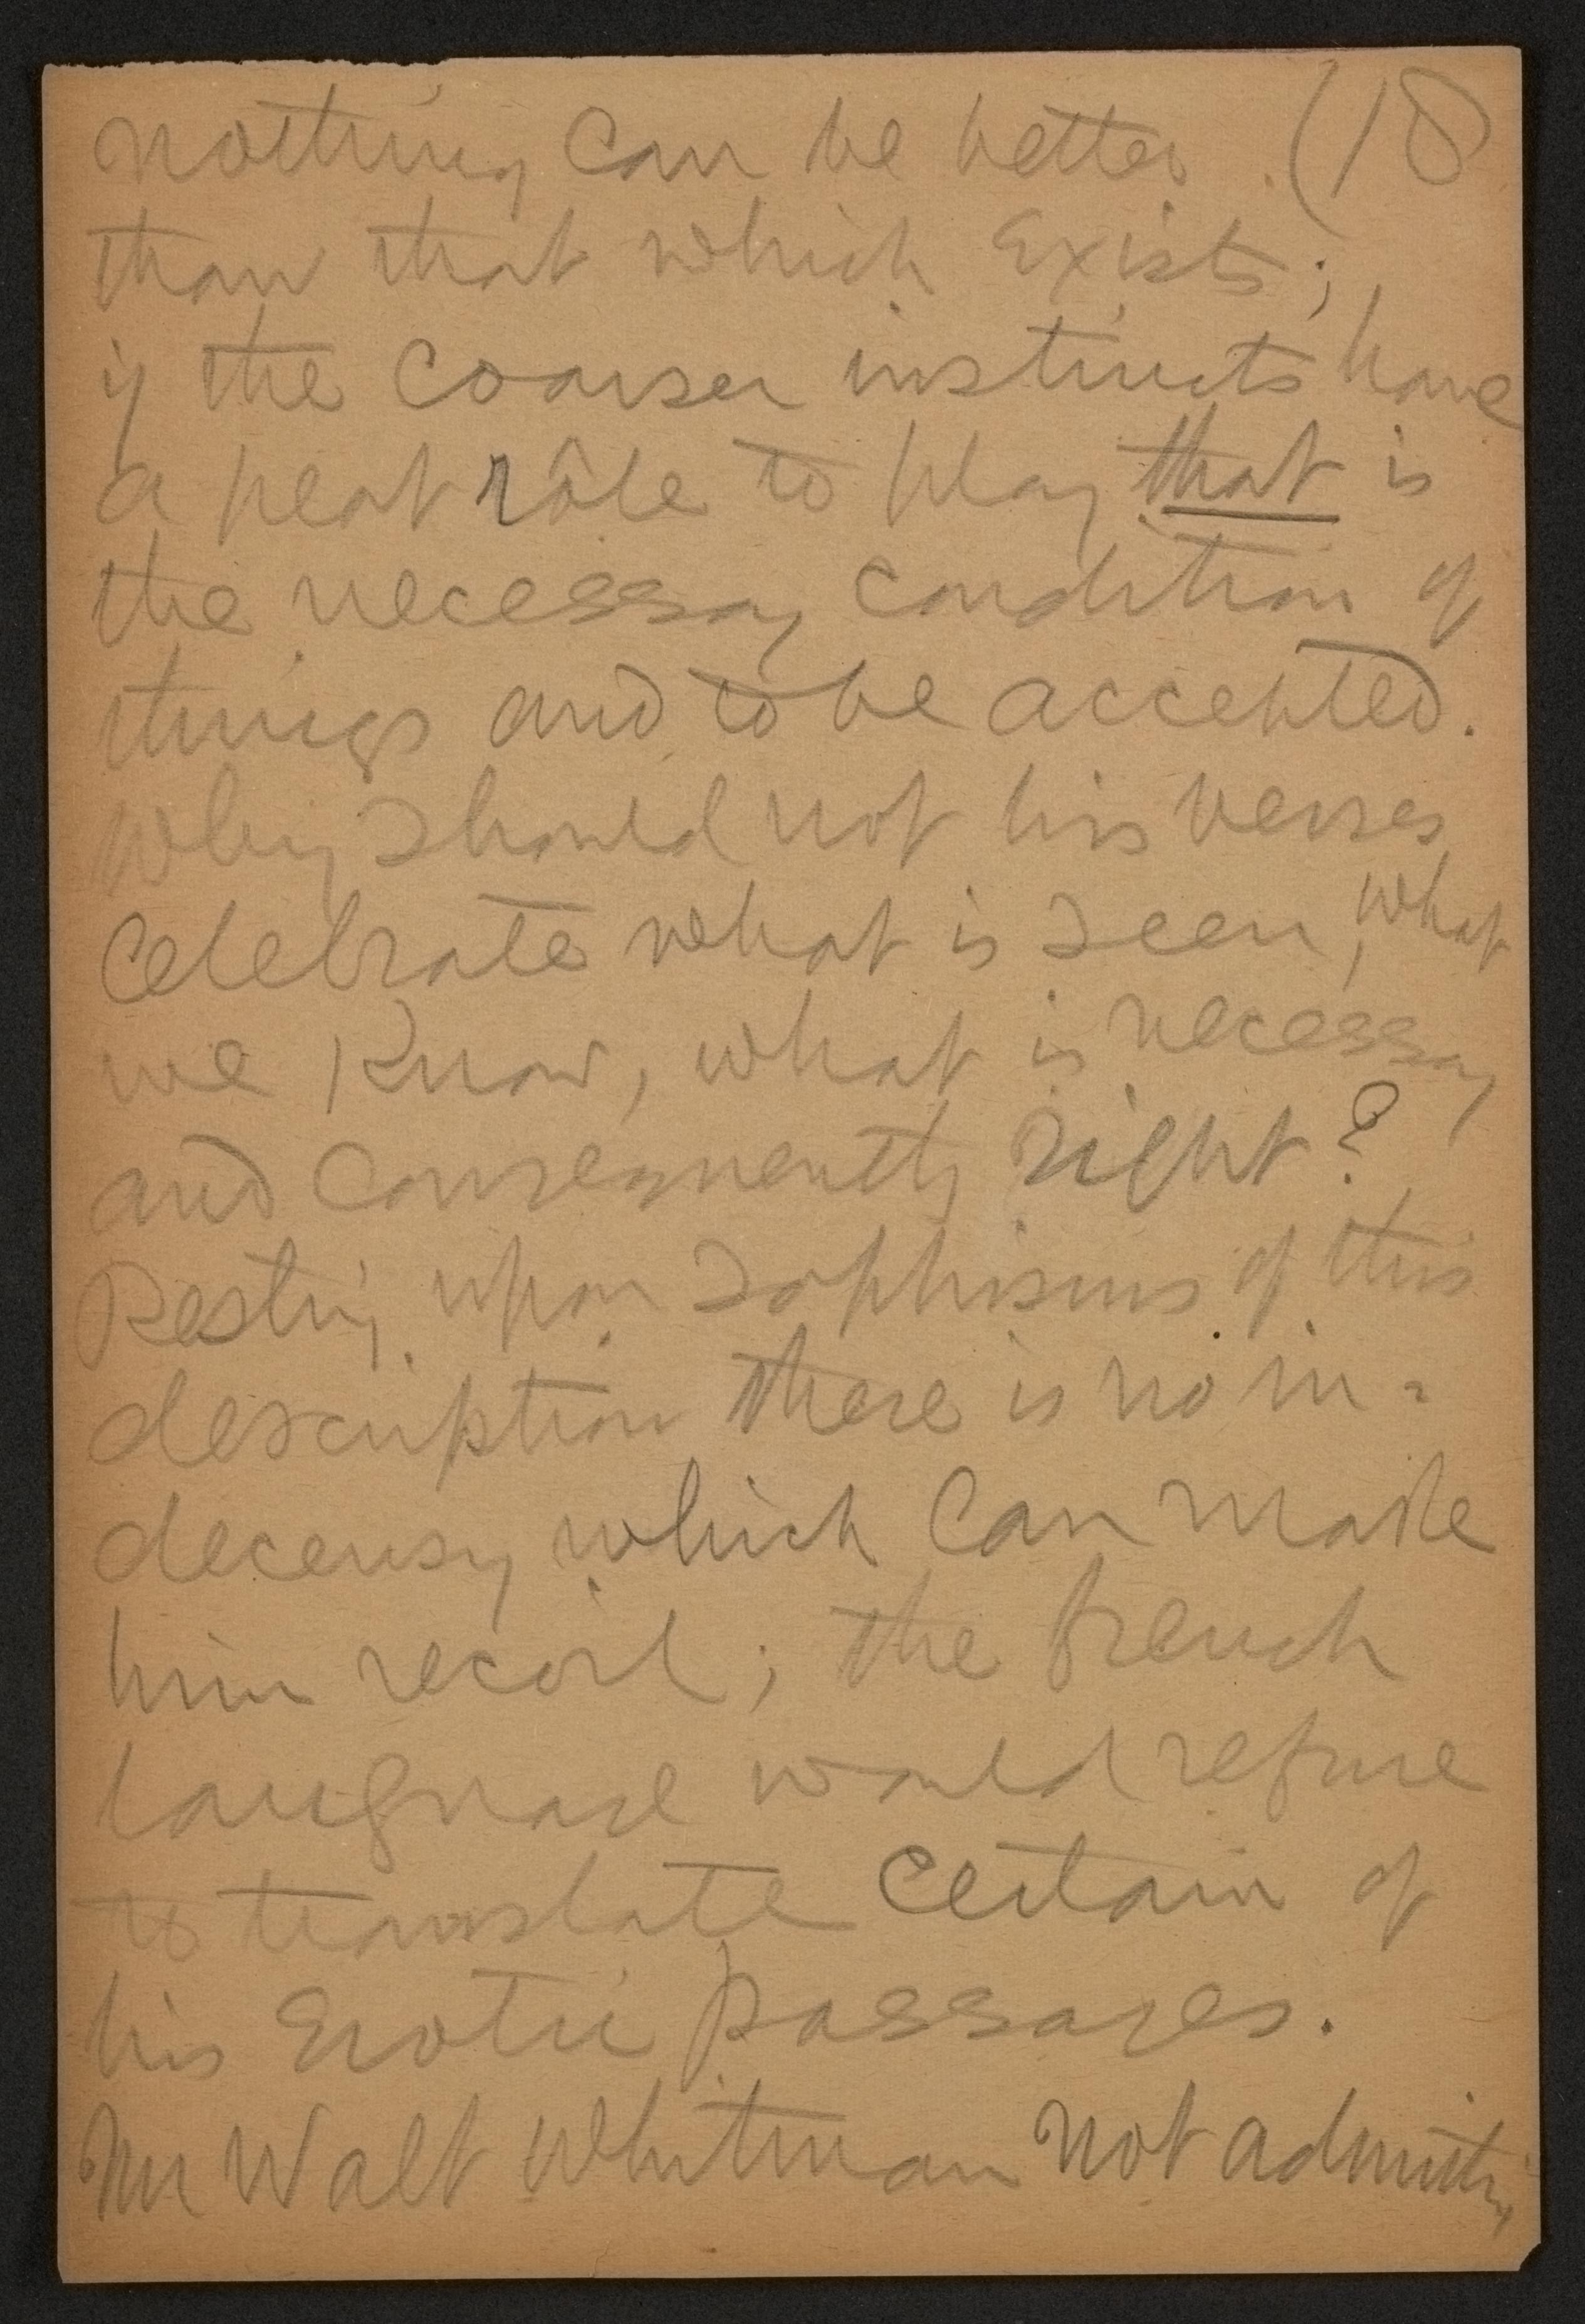 nothing can be better (18
than that which Exists;
if the coarser instincts have
a great rôle to play that is
the necessary condition of
things and to be accepted.
Why should not his verses
Celebrate what is seen, what
we Know, what is necessary
and consequently right?
Resting upon sophisms of this
description there is no in-
decency which can make
him recoil; the french
language would refuse
to translate certain of
his Erotic passages.
Mr Walt Whitman not admitting